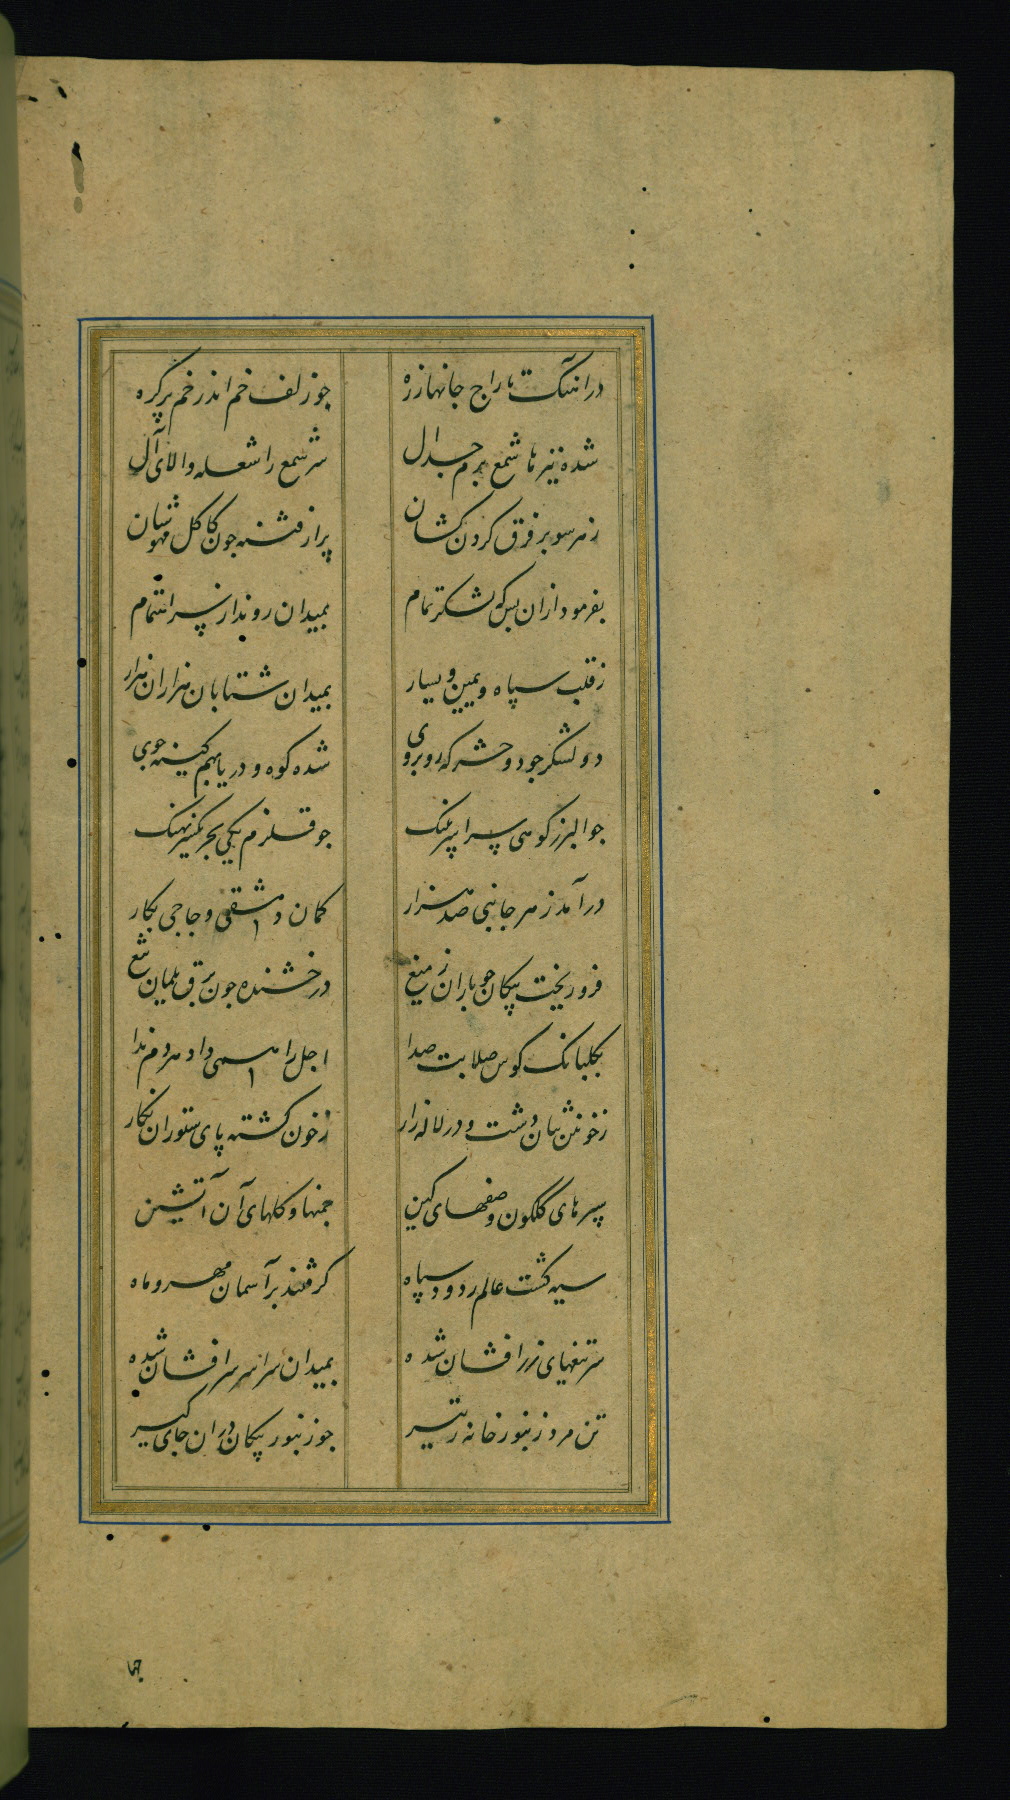 در آهنگ تاراج جانها زره چو زلف خم اندر خم پر گره
شده نیزها شمع بزم جدال سر شمع را شعله والای آل
ز هر سو بر فرق گردن کشان پر از فتنه چون کاکل مهوشان
بفرمود ازان پس که لشکر تمام بمیدان روند از سر
ز قلب سپاه و یمین و یسار بمیدان شتابان هزاران هزار
دو لشکر چو دو حشرکه روبروی شده کوه و دریا بهم کینه جوی
جو البرز کوهی سراسر پلنگ جو قلزم یکی بحر یکسر نهنگ
در آمد ز هر جانبی صد هزار کمان دمشقی و چاچی بکار
فرو ریخت پیکان چو باران ز میغ درخشنده جون برق یلمان تیغ
بگلبانگ کوس صلابت صدا اجل را همی داد مردم ندا
ز خون شان دشت و در لاله زار ز خون کشته پای ستوران نگار
سپرهای گلگون و صفهای کین جمنها و کلهای آن آتشین
سیه گشت عالم ز دود سپاه گرفتند بر آسمان مهر و ماه
سر تیغهای زر افشان شده بمیدان سراسر سر افشان شده
تن مرد زنبور خانه ز تیر جو زنبور پیکان در آن جای گیر